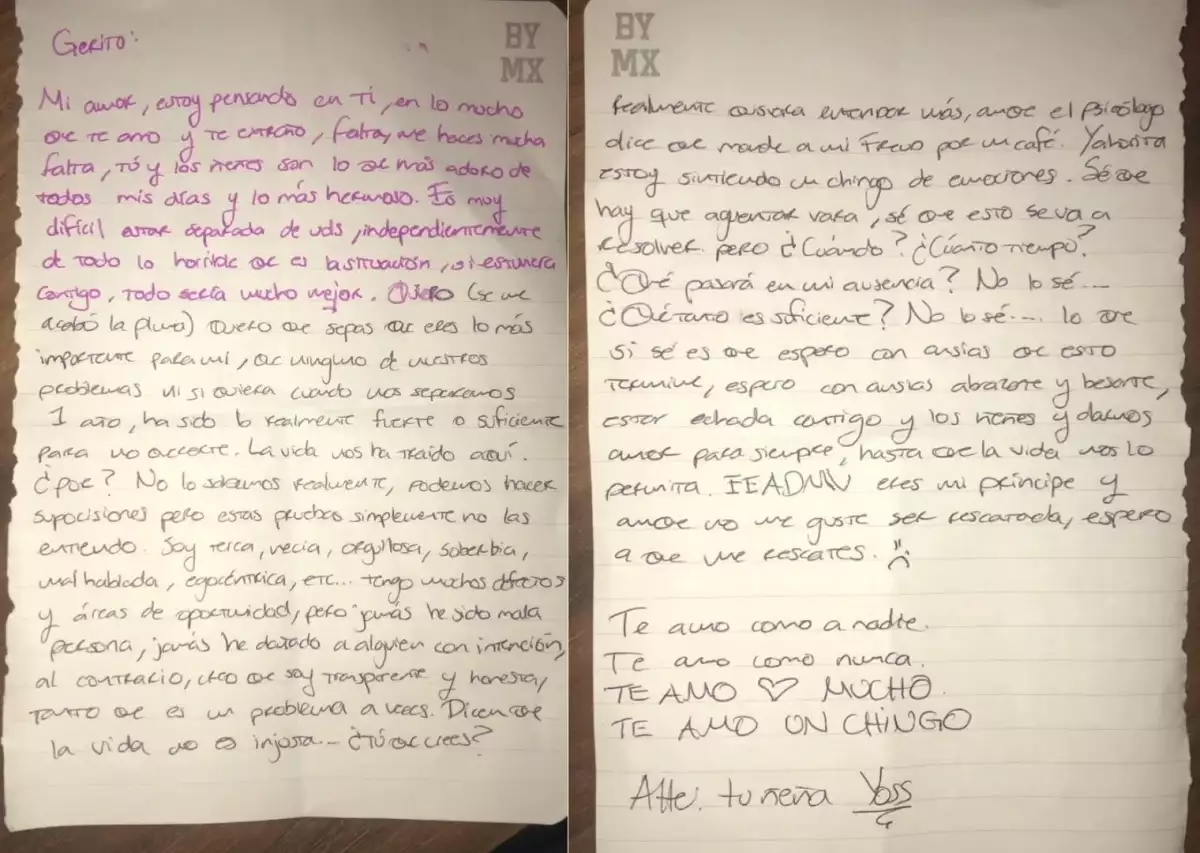 BY
MX
Gerito:
Mi amor, estoy pensando en ti, en lo mucho
qe te amo y te extraño, falta, me haces mucha
falta, tú y los nenes son lo qe más adoro de
todos mis días y lo más hermoso. Es muy
difícil estar separada de uds, independientemente
de todo lo horrible qe es la situación, si estuviera
contigo, todo sería mucho mejor. Quiero (se me
acabó la pluma) Quiero qe sepas qe eres lo más
importante para mi, qe ninguno de nuestros
problemas ni si quiera cuando nos separamos
1 año, ha sido lo realmente fuerte o suficiente
para no . La vida nos ha traído aquí.
¿por? No lo sabemos realmente, podemos hacer
suposiciones pero estas pruebas simplemente no las
entiendo. Soy terca, necia, orgullosa, soberbia,
mal hablada, egocéntrica, etc... tengo muchos defectos
y áreas de oportunidad, pero jamás he sido mala
persona, jamás he dañado a alguien con intención,
al contrario, creo qe soy transparente y honesta,
tanto qe es un problema a veces. Dicen qe
la vida no es injusta... ¿Tú qe crees?
BY
MX
Realmente quisiera entender más, anqe el psicólogo
dice qe mande a mi Freud por un café. Yahorita
estoy sintiendo un chingo de emociones. Sé qe
hay que aguentar vara, sé qe esto se va a
resolver pero ¿Cuándo? ¿Cuánto tiempo?
¿Qé pasará en mi ausencia? No lo sé....
¿Qé tanto es suficiente? No lo sé.... lo qe
si sé es qe espero con ansias qe esto
termine, espero con ansias abrazarte y besarte,
estar echada contigo y los nenes y darnos
amor para siempre, hasta qe la vida nos lo
permita. eres mi príncipe y
anqe no me guste ser rescatada, espero
a qe me rescates. :(
Te amo como a nadie.
Te amo como nunca.
TE AMO ♡ MUCHO.
TE AMO UN CHINGO
Atte. tu nena Yoss